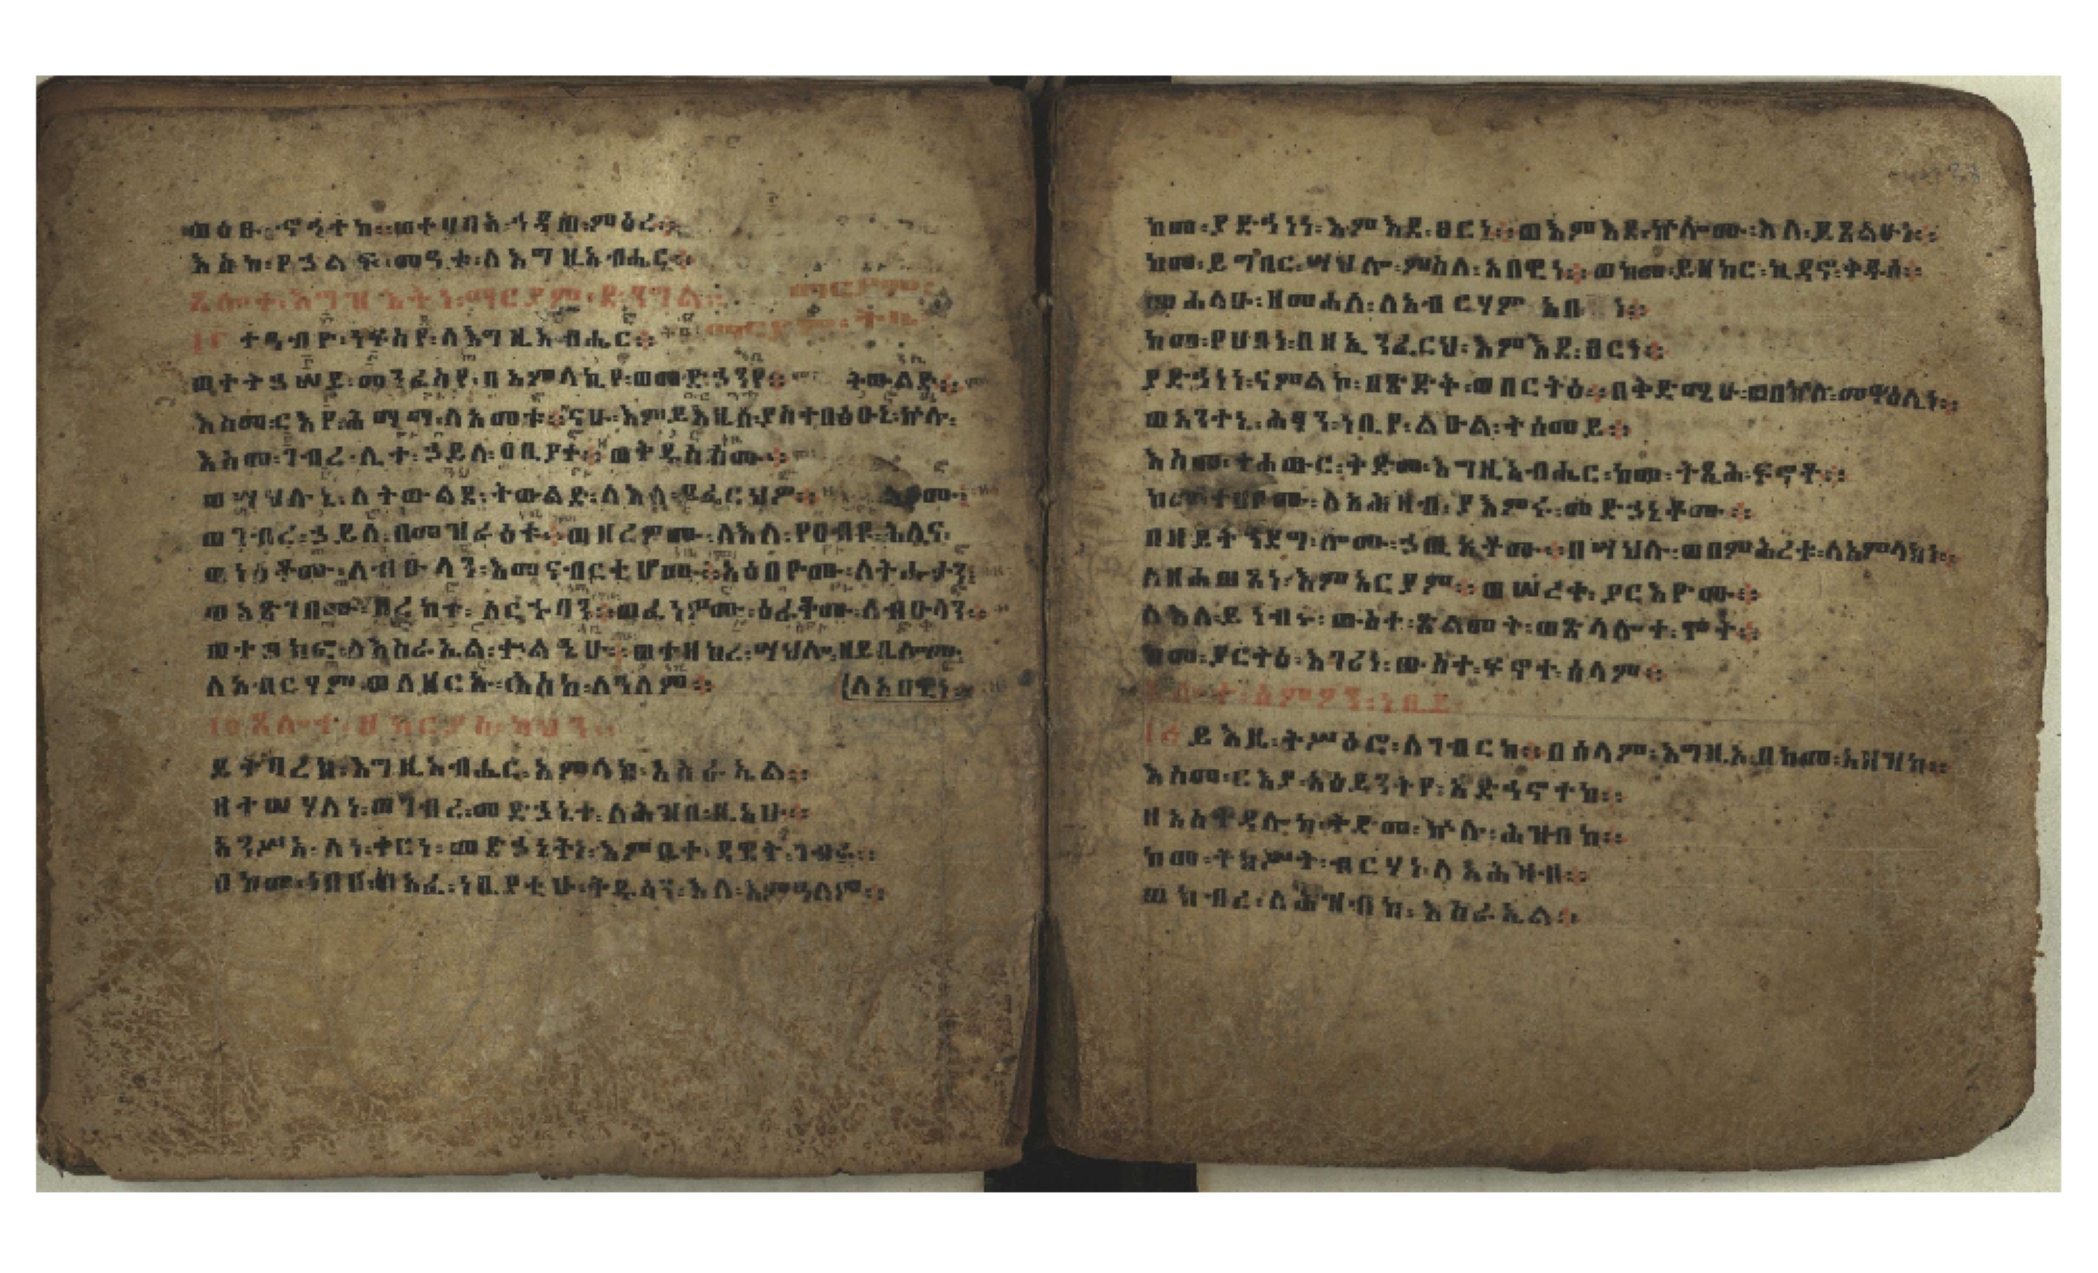 ወዕፁ፡ ኆኅተከ። ወተሀባእ፡ ኅዳጠ፡ ምዕረ።
እስከ፡ የኃልፍ፡ መዓቱ፡ ለእግዚአብሔር።
ጸሎተ፡ እግዝእትነ፡ ማርያም፡ ድንግል።
ተዓብዮ፡ ነፍስየ፡ ለእግዚአብሔር።
ወትትኃሠይ፡ መንፈስየ፡ በአምላኪየ፡ ወመድኃንየ።
ትውልድ።
እስመ፡ ርእየ፡ ሕማማ፡ ለአመቱ። ናሁ፡ እምይእዜሰ፡ ያስተበፅዑኒ፡ ኵሉ፡
እስመ፡ ገብረ፡ ሊተ፡ ኃይለ፡ ዐቢያተ። ወቅዱስ፡ ስሙ።
ወሣህሉኒ፡ ለትውልደ፡ ትውልድ፡ ለእለ፡ ይፈርህዎ።
ወገብረ፡ ኃይለ፡ በመዝራዕቱ። ወዘረዎሙ፡ ለእለ፡ የዐብዩ፡ ሕሊና፡
ወነሠቶሙ፡ ለብዑላን፡ እመናብርቲሆሙ። አዕበዮሙ፡ ለትሑታን፡
ወአጽገበሙ፡ በረከተ፡ ለርኁባን። ወፈነዎሙ፡ ዕራቆሙ፡ ለብዑላን።
ወተወክፎ፡ ለእስራኤል፡ ቍልዔሁ። ወተዘከረ፡ ሣህሎ፡ ዘይቤሎሙ፡
ለአብርሃም፡ ወለዘርኡ፡ እስከ፡ ለዓለም።
ለአበዊነ።
ጸሎተ፡ ዘካርያስ፡ ካህን።
ይትባረክ፡ እግዚአብሔር፡ አምላክ፡ እስራኤል።
ዘተሣሃለነ፡ ወገብረ፡ መድኃኒተ፡ ለሕዝበ፡ ዚአሁ።
አንሥአ፡ ለነ፡ ቀርነ፡ መድኃኒትነ፡ እምቤተ፡ ዳዊት፡ ገብሩ።
በከመ፡ ነበበ፡ በአፈ፡ ነቢያቲሁ፡ ቅዱሳን፡ እለ፡ እምዓለም።
ከመ፡ ያድኅነነ፡ እምእደ፡ ፀርነ። ወእምእደ፡ ኵሎሙ፡ እለ፡ ይጸልሁነ።
ከመ፡ ይግበር፡ ሣህሎ፡ ምስለ፡ አበዊነ። ወከመ፡ ይዘከር፡ ኪዳኖ፡ ቅዱሰ።
መሐላሁ፡ ዘመሐለ፡ ለአብርሃም፡ አቡነ።
ከመ፡ የሀበነ፡ በዘኢንፈርህ፡ እምእደ፡ ፀርነ።
ያድኅነነ፡ ናምልኮ፡ በጽድቅ፡ ወበርትዕ። በቅድሜሁ፡ በኵሉ፡ መዋዕሊነ።
ወአንተኒ፡ ሕፃን፡ ነቢየ፡ ልዑል፡ ትሰመይ።
እስመ፡ ተሐውር፡ ቅድመ፡ እግዚአብሔር፡ ከመ፡ ትጺሕ፡ ፍኖቶ።
ከመ፡ ተሀቦሙ፡ ለአሕዛብ፡ ያእምሩ፡ መድኃኒቶሙ።
በዘይትኀደግ፡ ሎሙ፡ ኃጢአቶሙ። በሣህሉ፡ ወበምሕረቱ፡ ለአምላክነ።
በዘሐወጸነ፡ እምአርያም። ወሠረቀ፡ ያርእዮሙ።
ለእለ፡ ይነብሩ፡ ውስተ፡ ጽልመት፡ ወጽላሎተ፡ ሞት።
ከመ፡ ያርትዕ፡ እገሪነ፡ ውስተ፡ ፍኖተ፡ ሰላም።
ጸሎተ፡ ስምዖን፡ ነቢይ።
ይእዜ፡ ትሥዕሮ፡ ለገብርከ። በሰላም፡ እግዚኦ፡ በከመ፡ አዘዝከ።
እስመ፡ ርእያ፡ አዕይንትየ፡ አድኅኖተከ።
ዘአስተዳሎከ፡ ቅድመ፡ ኵሉ፡ ሕዝብከ።
ከመ፡ ትክሥት፡ ብርሃነ፡ ለአሕዛብ።
ወክብረ፡ ለሕዝብከ፡ እስራኤል።